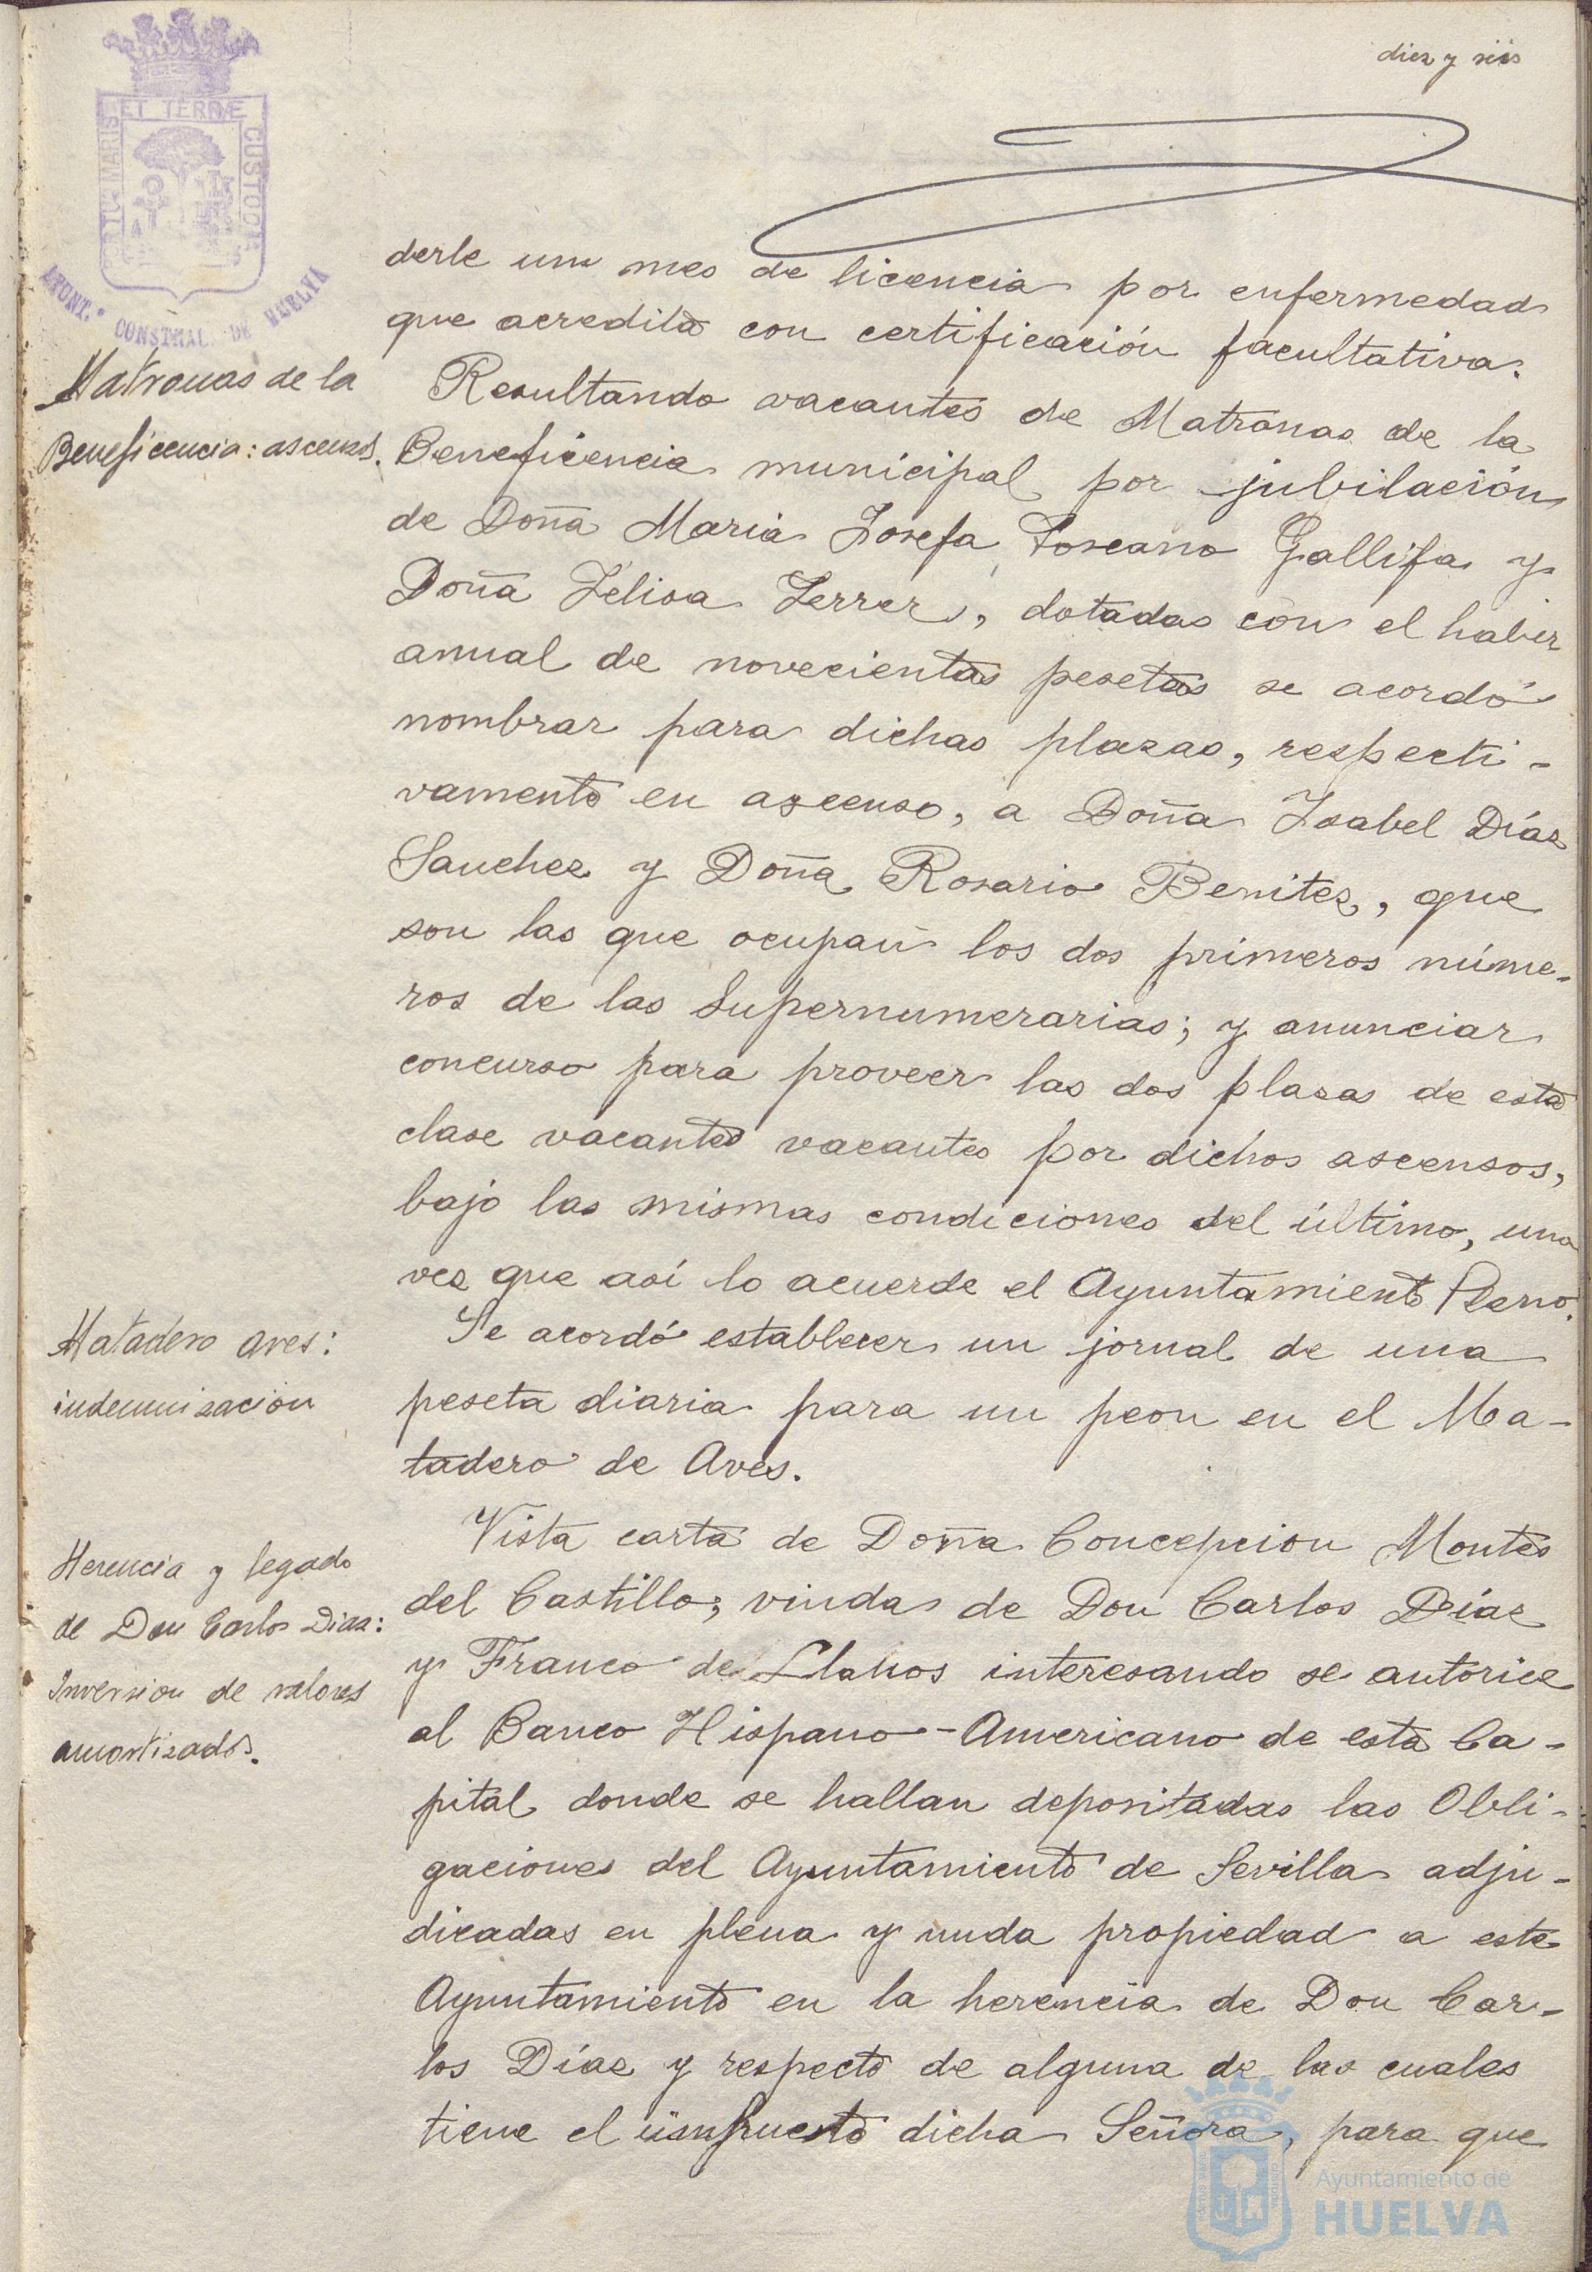 diez y seis
PORTUS MARIS ET TERRÆ CUSTODIA
AYUNT.º CONSTNAL. DE HUELVA
derle un mes de licencia por enfermedad
que acredita con certificación facultativa.
Matronas de la
Beneficencia: ascensos.
Resultando vacantes de Matronas de la
Beneficencia municipal por jubilación
de Doña Maria Josefa Toscano Gallifa y
Doña Felisa Ferrer, dotadas con el haber
anual de novecientas pesetas se acordó
nombrar para dichas plazas, respecti-
vamente en ascenso, a Doña Isabel Díaz
Sanchez y Doña Rosario Benitez, que
son las que ocupan los dos primeros núme-
ros de las Supernumerarias; y anunciar
concurso para proveer las dos plazas de esta
clase vacantes vacantes por dichos ascensos,
bajo las mismas condiciones del último, una
vez que así lo acuerde el Ayuntamiento Pleno.
Matadero aves:
indemnizacion
Se acordó establecer un jornal de una
peseta diaria para un peon en el Ma-
tadero de Aves.
Herencia y legado
de Don Carlos Diaz:
Inversion de valores
amortizados.
Vista carta de Doña Concepcion Montes
del Castillo, viuda de Don Carlos Díaz
y Franco de Llanos interesando se autorice
al Banco Hispano-Americano de esta Ca-
pital donde se hallan depositadas las Obli-
gaciones del Ayuntamiento de Sevilla adju-
dicadas en plena y nuda propiedad a este
Ayuntamiento en la herencia de Don Car-
los Díaz y respecto de alguna de las cuales
tiene el dicha Señora, para que
Ayuntamiento de
HUELVA